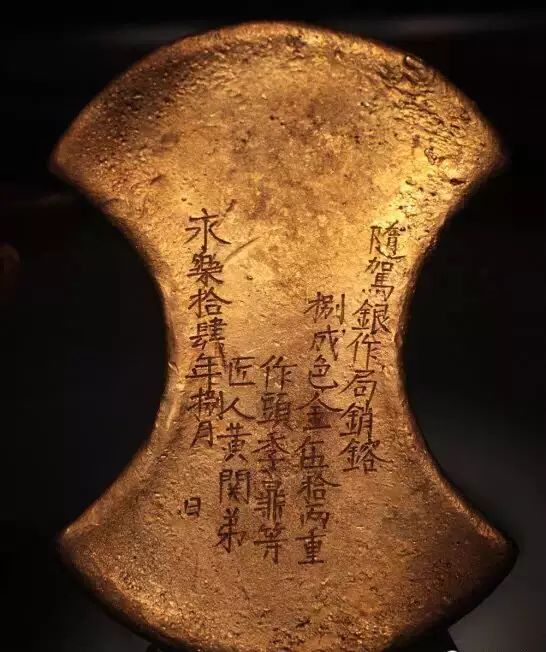 隨駕銀作局銷鎔
捌成色金伍拾两重
作頭季鼎等
匠人黄関弟
永樂拾肆年捌月 日